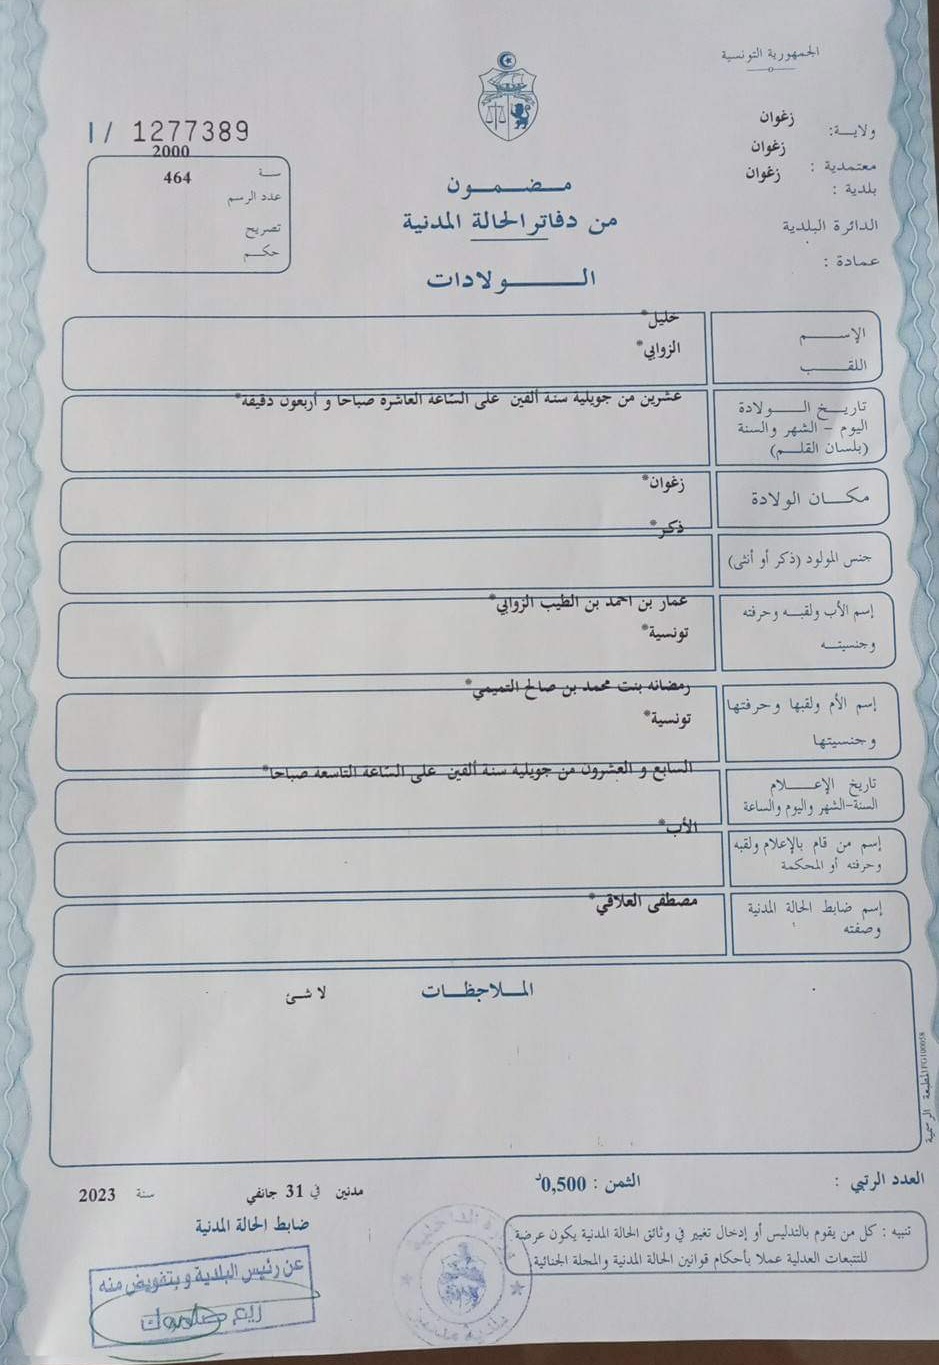 الجمهورية التونسية
ولاية: زغوان
معتمدية : زغوان
بلدية : زغوان
الدائرة البلدية
عمادة :
I/ 1277389
سنة 2000
عدد الرسم 464
تصريح
حكم
مضمون
من دفاتر الحالة المدنية
الولادات
الإسم خليل*
اللقب الزوابي*
تاريخ الولادة
اليوم - الشهر والسنة
(بلسان القلم)
عشرين من جويلية سنة ألفين على الساعة العاشرة صباحا و أربعون دقيقة*
مكان الولادة زغوان*
جنس المولود (ذكر أو أنثى) ذكر*
إسم الأب ولقبه وحرفته
وجنسيته
عمار بن احمد بن الطيب الزوابي*
تونسية*
إسم الأم ولقبها وحرفتها
وجنسيتها
رمضانه بنت محمد بن صالح التميمي*
تونسية*
تاريخ الإعلام
السنة-الشهر واليوم والساعة
السابع و العشرون من جويلية سنة ألفين على الساعة التاسعة صباحا*
إسم من قام بالإعلام ولقبه
وحرفته أو المحكمة
الأب*
إسم ضابط الحالة المدنية
وصفته
مصطفى العلاقي*
الملاحظات
لا شئ
المطبعة الرسمية
العدد الرتبي :
الثمن : 0,500د
مدنين في 31 جانفي سنة 2023
ضابط الحالة المدنية
تنبيه : كل من يقوم بالتدليس أو إدخال تغيير في وثائق الحالة المدنية يكون عرضة
للتتبعات العدلية عملا بأحكام قوانين الحالة المدنية والمجلة الجنائية.
عن رئيس البلدية و بتفويض منه
ريم